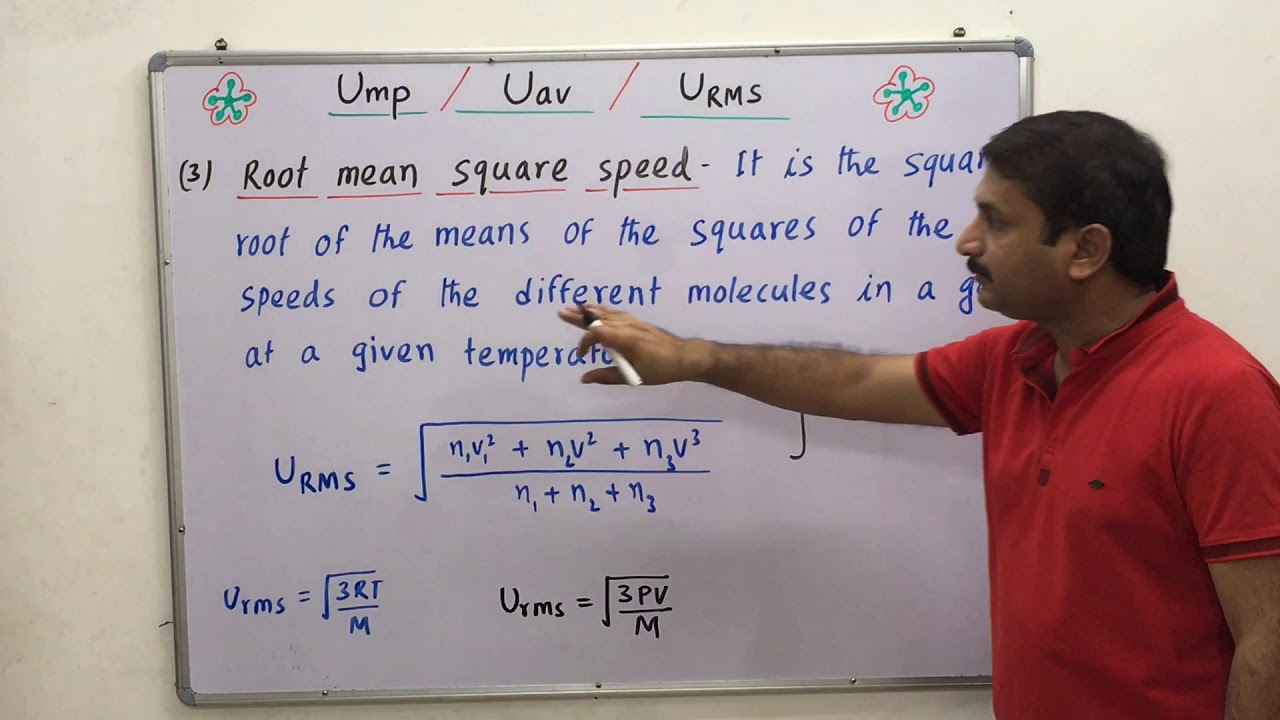 Ump / Uav / URMS
(3) Root mean square speed - It is the
root of the means of the squares of the
speeds of the different molecules in a
at a given
URMS = √(n₁v₁² + n₂v² + n₃v³ / n₁ + n₂ + n₃)
Urms = √(3RT / M) Urms = √(3PV / M)